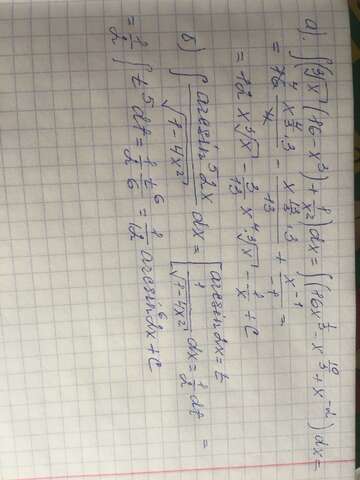 а). ∫(∛x (16 - x³) + 1/x²) dx = ∫(16x^(1/3) - x^(10/3) + x^(-2)) dx =
= 16 x^(4/3)·3/4 - x^(13/3)·3/13 + x^(-1)/-1 =
= 12 x ∛x - 3/13 x⁴ ∛x - 1/x + C
б) ∫ arcsin⁵2x/√(1-4x²) dx = [arcsin2x = t
1/√(1-4x²) dx = 1/2 dt] =
= 1/2 ∫ t⁵ dt = 1/2 t⁶/6 = 1/12 arcsin⁶2x + C